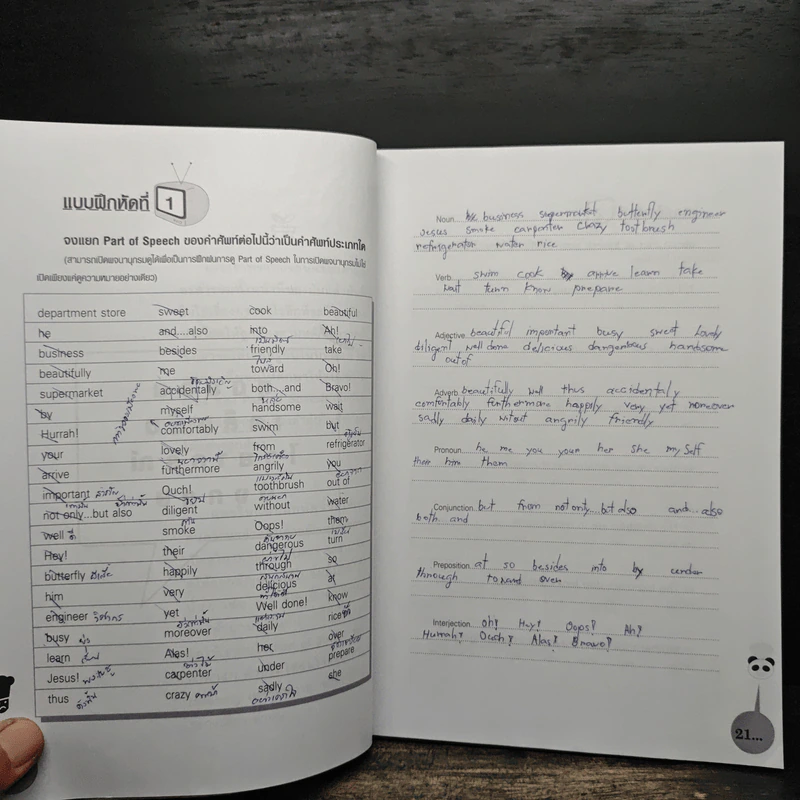 แบบฝึกหัดที่ 1
จงแยก Part of Speech ของคำศัพท์ต่อไปนี้ว่าเป็นคำศัพท์ประเภทใด
(สามารถเปิดพจนานุกรมดูได้เพื่อเป็นการฝึกฝนการดู Part of Speech ในการเปิดพจนานุกรมไม่ใช่
เปิดเพียงแค่ดูความหมายอย่างเดียว)
department store sweet cook beautiful
he and....also into Ah!
business besides friendly take
beautifully me toward Oh!
supermarket accidentally both...and Bravo!
by myself handsome wait
Hurrah! comfortably swim but
your lovely from refrigerator
arrive furthermore angrily you
important Ouch! toothbrush out of
not only...but also diligent without water
well smoke Oops! them
Hey! their dangerous turn
butterfly happily through so
him very delicious at
engineer วิศวกร yet Well done! know
busy moreover daily rice
learn Alas! her over
Jesus! carpenter under prepare
thus crazy sadly she
Noun he business supermarket butterfly engineer
Jesus smoke carpenter crazy toothbrush
refrigerator water rice
Verb swim cook arrive learn take
wait turn know prepare
Adjective beautiful important busy sweet lovely
diligent well done delicious dangerous handsome
out of
Adverb beautifully well thus accidentaly
comfortably furthermore happily very yet moreover
sadly daily witout angrily friendly
Pronoun he me you your her she my self
their him them
Conjunction but from not only...but also and...also
both and
Preposition at so besides into by under
through toward over
Interjection oh! Hey! Oops! Ah!
Hurrah! Ouch! Alas! Bravo!
21...